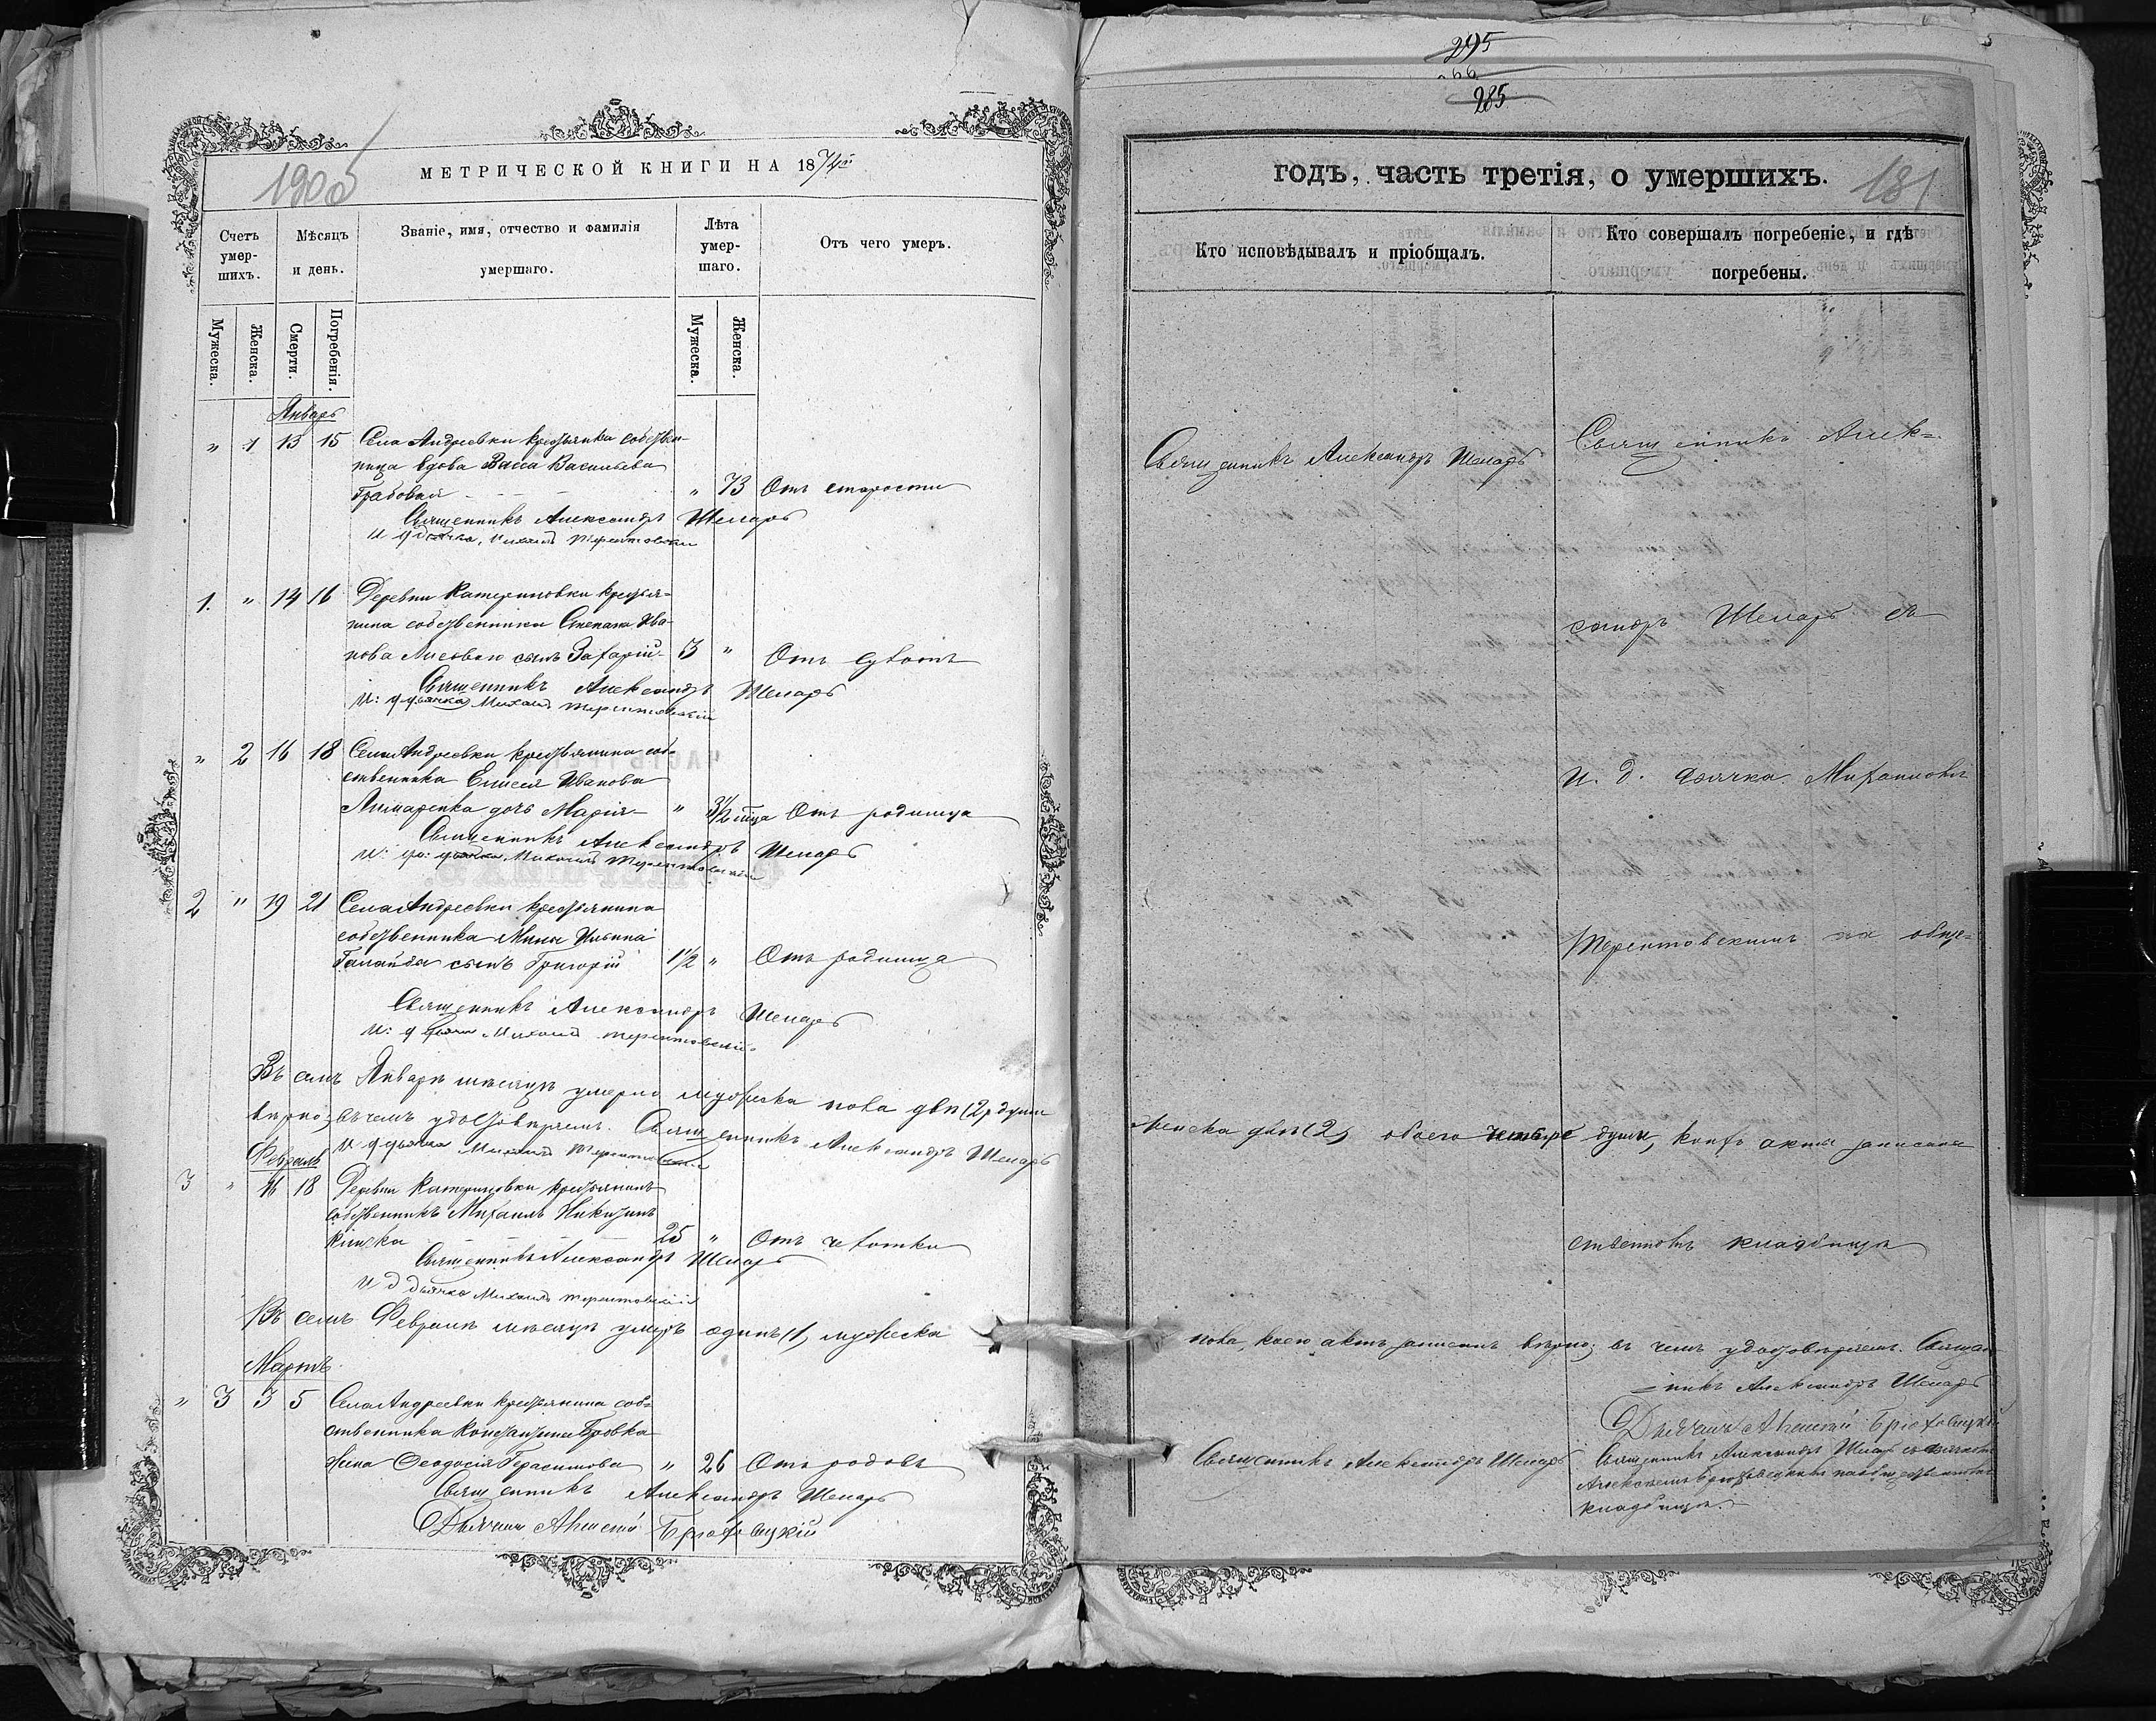 295
285
190об
МЕТРИЧЕСКОЙ КНИГИ НА 1874й
Счетъ умер-
шихъ.
Мѣсяцъ
и день.
Званіе, имя, отчество и фамилія
умершаго.
Лѣта
умер-
шаго.
Отъ чего умеръ.
Мужеска.
Женска.
Смерти.
Погребенія.
Мужеска.
Женска.
Январь
" 1 13 15 Села Андреевки крестьянка собствен-
ница вдова Васса Васильева
Грабовая " 73 Отъ старости
Священникъ Александръ Шепаръ
И д дьячка, Михаилъ Терентовскій
1. " 14 16 Деревни Катериновки крестья-
нина собственника Степана Ива-
нова Лисоваго сынъ Захарій 3 " Отъ сухотъ
Священникъ Александръ Шепаръ
И: д дьячка Михаилъ Терентовскій
" 2 16 18 Села Андреевки крестьянина соб-
ственника Елисея Иванова
Лимаренка дочь Марія " 3½ мца Отъ родимца
Священникъ Александръ Шепаръ
И: до: дьячка Михаилъ Терентовскій
2 " 19 21 Села Андреевки крестьянина
собственника Мины Ильина
Галайда сынъ Григорій 1½ " Отъ родимца
Священникъ Александръ Шепаръ
И: д дьячка Михаилъ Терентовскій
Въ семъ Январѣ мѣсяцѣ умерло мужеска пола двѣ (2) души
вѣрно, въ чемъ удостовѣряемъ. Священникъ Александръ Шепаръ
И д дьячка Михаилъ Терентовскій
Февраль
3 " 16 18 Деревни Катериновки крестьянинъ
собственникъ Михаилъ Никитинъ
25 " Отъ чахотки
Священникъ Александръ Шепаръ
И д дьячка Михаилъ Терентовскій
Въ семъ Февралѣ мѣсяцѣ умеръ одинъ (1) мужеска
Мартъ
" 3 3 5 Села Андреевки крестьянина соб-
ственника Константина Бровка
жена Феодосія Герасимова " 26 Отъ родовъ
Священникъ Александръ Шепаръ
Дьячекъ Алексѣй
годъ, часть третія, о умершихъ.
181
Кто исповѣдывалъ и пріобщалъ.
Кто совершалъ погребеніе, и гдѣ
погребены.
Священникъ Александръ Шепаръ
Священникъ Алек-
сандръ Шепаръ съ
И. д. дьячка Михаиломъ
Терентовскимъ на обще-
женска двѣ (2) обоего четыре души, коихъ акты записаны
ственномъ кладбищѣ
пола, коего актъ записанъ вѣрно; въ чемъ удостовѣряемъ. Священ-
никъ Александръ Шепаръ
Дьячекъ Алексѣй
Священникъ Александръ Шепаръ
Священникъ Александръ Шепаръ съ дьячкомъ
Алексѣемъ на общественномъ
кладбищѣ.